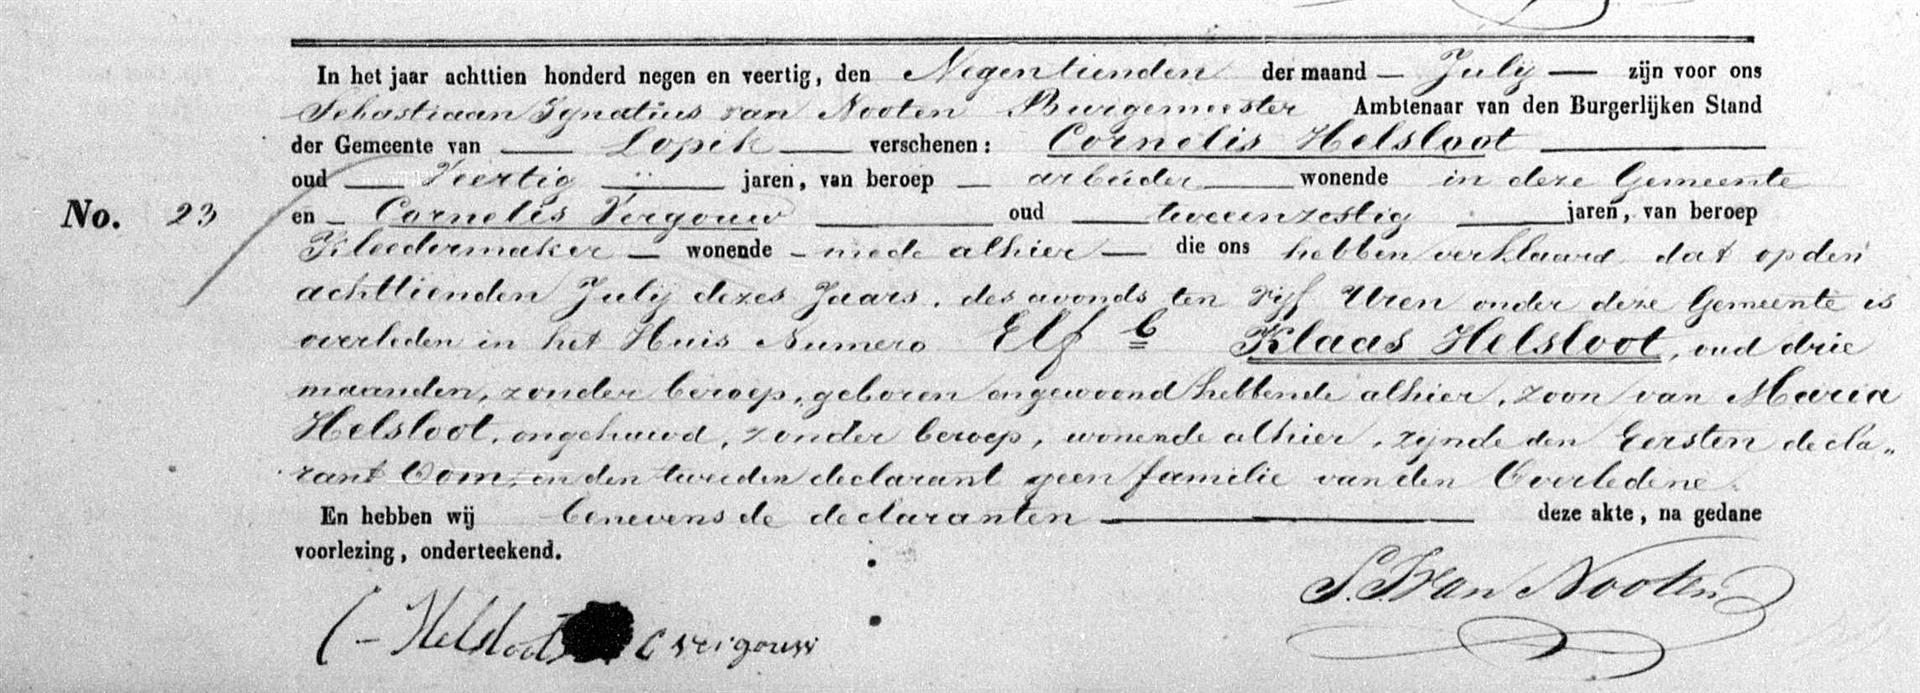 In het jaar achttien honderd negen en veertig, den Negentienden der maand — July — zijn voor ons
Sebastiaan Ignatius van Nooten Burgemeester Ambtenaar van den Burgerlijken Stand
der Gemeente van — Lopik — verschenen: Cornelis Helsloot —
oud — Veertig — jaren, van beroep — arbeider — wonende in deze Gemeente
No. 23 en — Cornelis Vergouw — oud — tweeenzestig — jaren, van beroep
Kleedermaker — wonende — mede alhier — die ons hebben verklaard dat op den
achttienden July dezes Jaars, des avonds ten vijf Uren onder deze Gemeente is
overleden in het Huis Numero Elf b Klaas Helsloot, oud drie
maanden, zonder beroep, geboren en gewoond hebbende alhier, zoon van Maria
Helsloot, ongehuwd, zonder beroep, wonende alhier, zynde den Eersten decla„
rant Oom, en den tweeden declarant geen familie van den Overledene.
En hebben wij benevens de declaranten — deze akte, na gedane
voorlezing, onderteekend.
S. I. Van Nooten
C Helsloot C vergouw